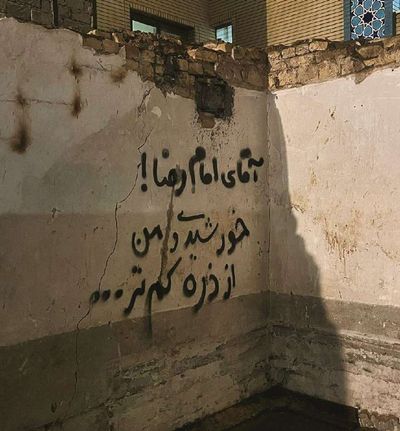 آقای امام رضا!
خورشیدی و من
از ذره کم تر...